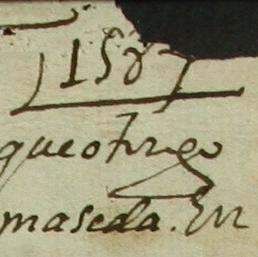 1587
que otorgo
maseda. En